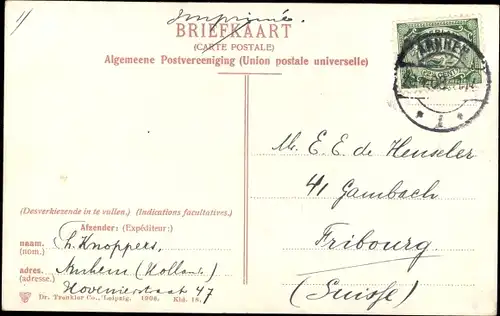 Imprimé.
BRIEFKAART
(CARTE POSTALE)
Algemeene Postvereeniging (Union postale universelle)
ARNHEM
M. E. E. de Henseler
41 Gambach
Fribourg
(Suisse)
(Desverkiezende in te vullen.) (Indications facultatives.)
Afzender: (Expéditeur:)
naam. Th. Knoppers,
(nom.)
adres. Arnhem (Holland)
(adresse.) Hovenierstraat 47
Dr. Trenkler Co., Leipzig. 1906. Kld. 18.